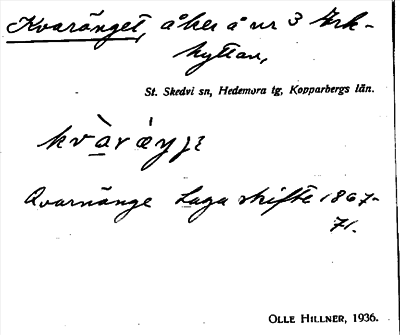 Kvaränget, åker å nr 3 Århyttan,
St. Skedvi sn, Hedemora tg, Kopparbergs län.
kvàráŋjɛ
Qvarnänge Laga skifte 1867-
71.
OLLE HILLNER, 1936.